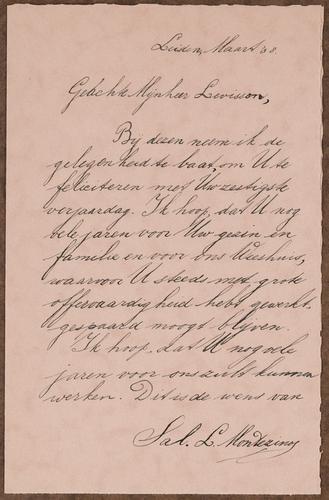 Leiden, Maart '38.
Geachte Mijnheer Levisson,
Bij dezen neem ik de
gelegenheid te baat, om U te
feliciteren met Uw zestigste
verjaardag. Ik hoop, dat U nog
vele jaren voor Uw gezin en
familie en voor ons Weeshuis,
waarvoor U steeds met grote
offervaardigheid hebt gewerkt,
gespaard moogt blijven.
Ik hoop, dat U nog vele
jaren voor ons zult kunnen
werken. Dit is de wens van
Sal. L. Montezinos